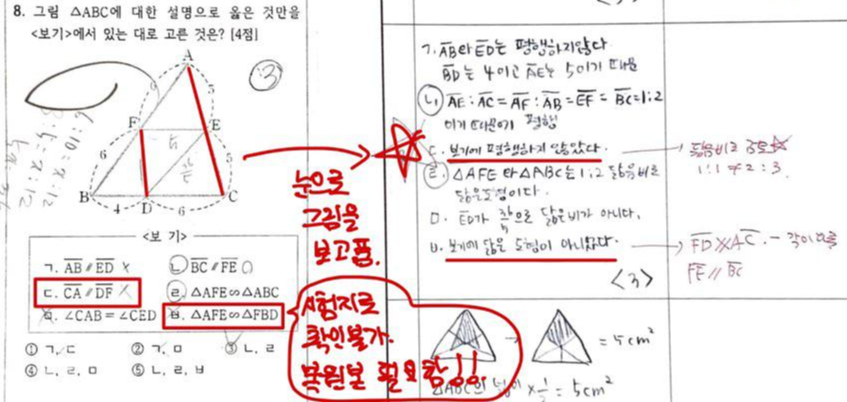 8. 그림 △ABC에 대한 설명으로 옳은 것만을
<보기>에서 있는 대로 고른 것은? [4점]
③
A
6
5
F
E
6
5
B
4
D
6
C
<보 기>
ㄱ. AB∥ED ㄴ. BC∥FE
ㄷ. CA∥DF ㄹ. △AFE∽△ABC
ㅁ. ∠CAB=∠CED ㅂ. △AFE∽△FBD
① ㄱ, ㄷ ② ㄱ, ㅁ ③ ㄴ, ㄹ
④ ㄴ, ㄹ, ㅁ ⑤ ㄴ, ㄹ, ㅂ
눈으로
그림을
보고품.
시험지로
확인불가.
복원본 필요함!!
ㄱ. AB와 ED는 평행하지않다
BD는 4이고 AE는 5이기 때문
ㄴ. AE:AC=AF:AB=EF=BC=1:2
이기 때문에 평행
ㄷ. 보기에 평행하지 않았다.
ㄹ. △AFE와 △ABC는 1:2 닮음비로
닮은도형이다.
ㅁ. ED가 으로 닮은비가 아니다.
ㅂ. 보기에 닮은 도형이 아니었다.
<3>
1:1≠2:3.
FD AC. - 각이 다름
FE∥BC
=5cm²
△ABC의 넓이 × =5cm²